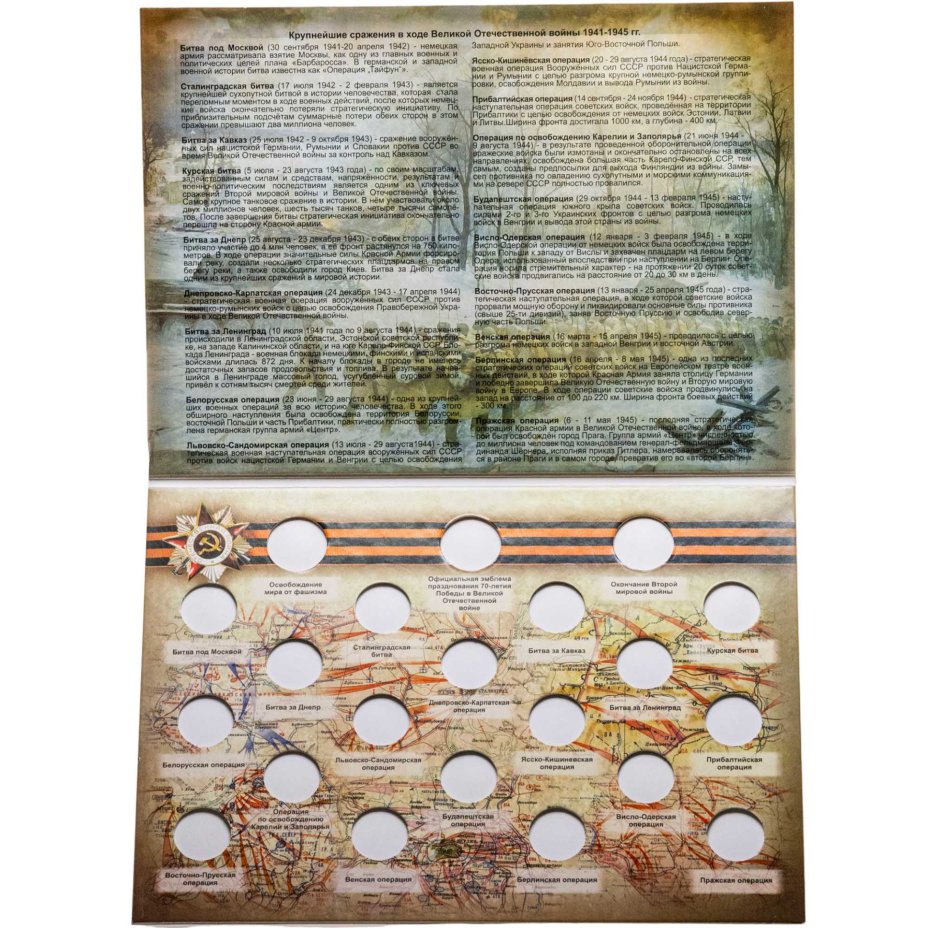 Крупнейшие сражения в ходе Великой Отечественной войны 1941-1945 гг.
Битва под Москвой (30 сентября 1941-20 апреля 1942) - немецкая
армия рассматривала взятие Москвы, как одну из главных военных и
политических целей плана «Барбаросса». В германской и западной
военной истории битва известна как «Операция „Тайфун".
Сталинградская битва (17 июля 1942 - 2 февраля 1943) - является
крупнейшей сухопутной битвой в истории человечества, которая стала
переломным моментом в ходе военных действий, после которых немец-
кие войска окончательно потеряли стратегическую инициативу. По
приблизительным подсчётам суммарные потери обеих сторон в этом
сражении превышают два миллиона человек.
Битва за Кавказ (25 июля 1942 - 9 октября 1943) - сражение вооружён-
ных сил нацистской Германии, Румынии и Словакии против СССР во
время Великой Отечественной войны за контроль над Кавказом.
Курская битва (5 июля - 23 августа 1943 года) - по своим масштабам,
задействованным силам и средствам, напряжённости, результатам и
военно-политическим последствиям является одним из ключевых
сражений Второй мировой войны и Великой Отечественной войны.
Самое крупное танковое сражение в истории. В нём участвовали около
двух миллионов человек, шесть тысяч танков, четыре тысячи самолё-
тов. После завершения битвы стратегическая инициатива окончательно
перешла на сторону Красной армии.
Битва за Днепр (25 августа - 23 декабря 1943) - с обеих сторон в битве
приняло участие до 4 млн человек, а её фронт растянулся на 750 кило-
метров. В ходе операции значительные силы Красной Армии форсиро-
вали реку, создали несколько стратегических плацдармов на правом
берегу реки, а также освободили город Киев. Битва за Днепр стала
одним из крупнейших сражений в мировой истории.
Днепровско-Карпатская операция (24 декабря 1943 - 17 апреля 1944)
- стратегическая военная операция вооружённых сил СССР против
немецких войск проведённая с целью освобождения Правобережной Укра-
ины в ходе Великой Отечественной войны.
Битва за Ленинград (10 июля 1941 года по 9 августа 1944) - сражения
происходили в Ленинградской области, Эстонской советской республи-
ке, на западе Калининской области, и на юге Карело-Финской ССР. Бло-
када Ленинграда - военная блокада немецкими, финскими и испанскими
войсками длилась 872 дня. К началу блокады в городе не имелось
достаточных запасов продовольствия и топлива. В результате начав-
шийся в Ленинграде массовый голод, усугублённый суровой зимой,
привёл к сотням тысяч смертей среди жителей.
Белорусская операция (23 июня - 29 августа 1944) - одна из крупней-
ших военных операций за всю историю человечества. В ходе этого
обширного наступления была освобождена территория Белоруссии,
восточной Польши и часть Прибалтики, практически полностью разгром-
лена германская группа армий «Центр».
Львовско-Сандомирская операция (13 июля - 29 августа1944) - стра-
тегическая военная наступательная операция вооружённых сил СССР
против войск нацистской Германии и Венгрии с целью освобождения
Западной Украины и занятия Юго-Восточной Польши.
Ясско-Кишинёвская операция (20 - 29 августа 1944 года) - стратегическая
военная операция Вооружённых сил СССР против Нацистской Герма-
нии и Румынии с целью разгрома крупной немецко-румынской группи-
ровки, освобождения Молдавии и вывода Румынии из войны.
Прибалтийская операция (14 сентября - 24 ноября 1944) - стратегическая
наступательная операция советских войск, проведенная на территории
Прибалтики с целью освобождения от немецких войск Эстонии, Латвии
и Литвы.Ширина фронта достигала 1000 км, а глубина - 400 км.
Операция по освобождению Карелии и Заполярья (21 июня 1944 -
9 августа 1944) - в результате проведенной оборонительной операции
вражеские войска были измотаны и окончательно остановлены на всех
направлениях, освобождена большая часть Карело-Финской ССР, тем
самым, созданы предпосылки для выхода Финляндии из войны. Замы-
сел противника по овладению сухопутными и морскими коммуникация-
ми на севере СССР полностью провалился.
Будапештская операция (29 октября 1944 - 13 февраля 1945) - насту-
пательная операция южного крыла советских войск. Проводилась
силами 2-го и 3-го Украинских фронтов с целью разгрома немецких
войск в Венгрии и вывода этой страны из войны.
Висло-Одерская операция (12 января - 3 февраля 1945) - в ходе
Висло-Одерской операции от немецких войск была освобождена терри-
тория Польши к западу от Вислы и захвачен плацдарм на левом берегу
Одера, использованный впоследствии при наступлении на Берлин. Опе-
рация носила стремительный характер - на протяжении 20 суток совет-
ские войска продвигались на расстояние от 20 до 30 км в день.
Восточно-Прусская операция (13 января - 25 апреля 1945 года) - стра-
тегическая наступательная операция, в ходе которой советские войска
прорвали мощную оборону и ликвидировали основные силы противника
(свыше 25-ти дивизий), заняв Восточную Пруссию и освободив север-
ную часть Польши.
Венская операция (16 марта - 15 апреля 1945) - проводилась с целью
разгрома немецких войск в западной Венгрии и восточной Австрии.
Берлинская операция (16 апреля - 8 мая 1945) - одна из последних
стратегических операций советских войск на Европейском театре воен-
ных действий, в ходе которой Красная Армия заняла столицу Германии
и победно завершила Великую Отечественную войну и Вторую мировую
войну в Европе. В ходе операции советские войска продвинулись на
запад на расстояние от 100 до 220 км. Ширина фронта боевых действий
- 300 км.
Пражская операция (6 - 11 мая 1945) - последняя стратегическая
операция Красной армии в Великой Отечественной войне, в ходе кото-
рой был освобождён город Прага. Группа армий «Центр» численностью
до миллиона человек под командованием генерал-фельдмаршала Фер-
динанда Шёрнера, исполняя приказ Гитлера, намеревалась обороняться
в районе Праги и в самом городе, превратив его во «второй Берлин».
Освобождение
мира от фашизма
Официальная эмблема
празднования 70-летия
Победы в Великой
Отечественной
войне
Окончание Второй
мировой войны
Битва под Москвой
Сталинградская
битва
Битва за Кавказ
Курская битва
Битва за Днепр
Днепровско-Карпатская
операция
Битва за Ленинград
Белорусская операция
Львовско-Сандомирская
операция
Ясско-Кишиневская
операция
Прибалтийская
операция
Операция
по освобождению
Карелии и Заполярья
Будапештская
операция
Висло-Одерская
операция
Восточно-Прусская
операция
Венская операция
Берлинская операция
Пражская операция